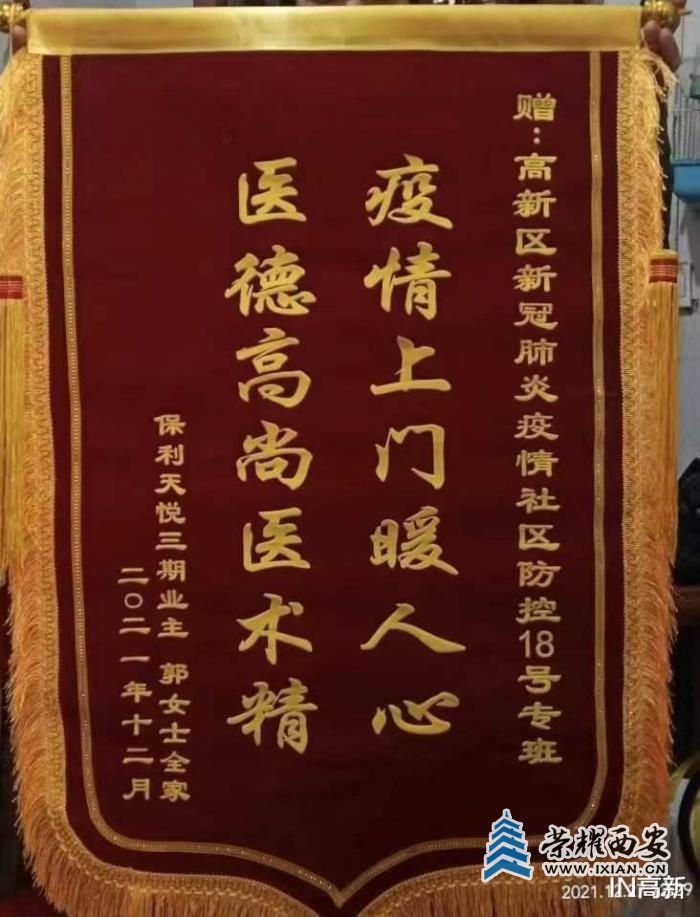 赠:高新区新冠肺炎疫情社区防控18号专班
疫情上门暖人心
医德高尚医术精
保利天悦三期业主 郭女士全家
二〇二一年十二月
荣耀西安
WWW.IXIAN.CN
IN高新
2021.12.